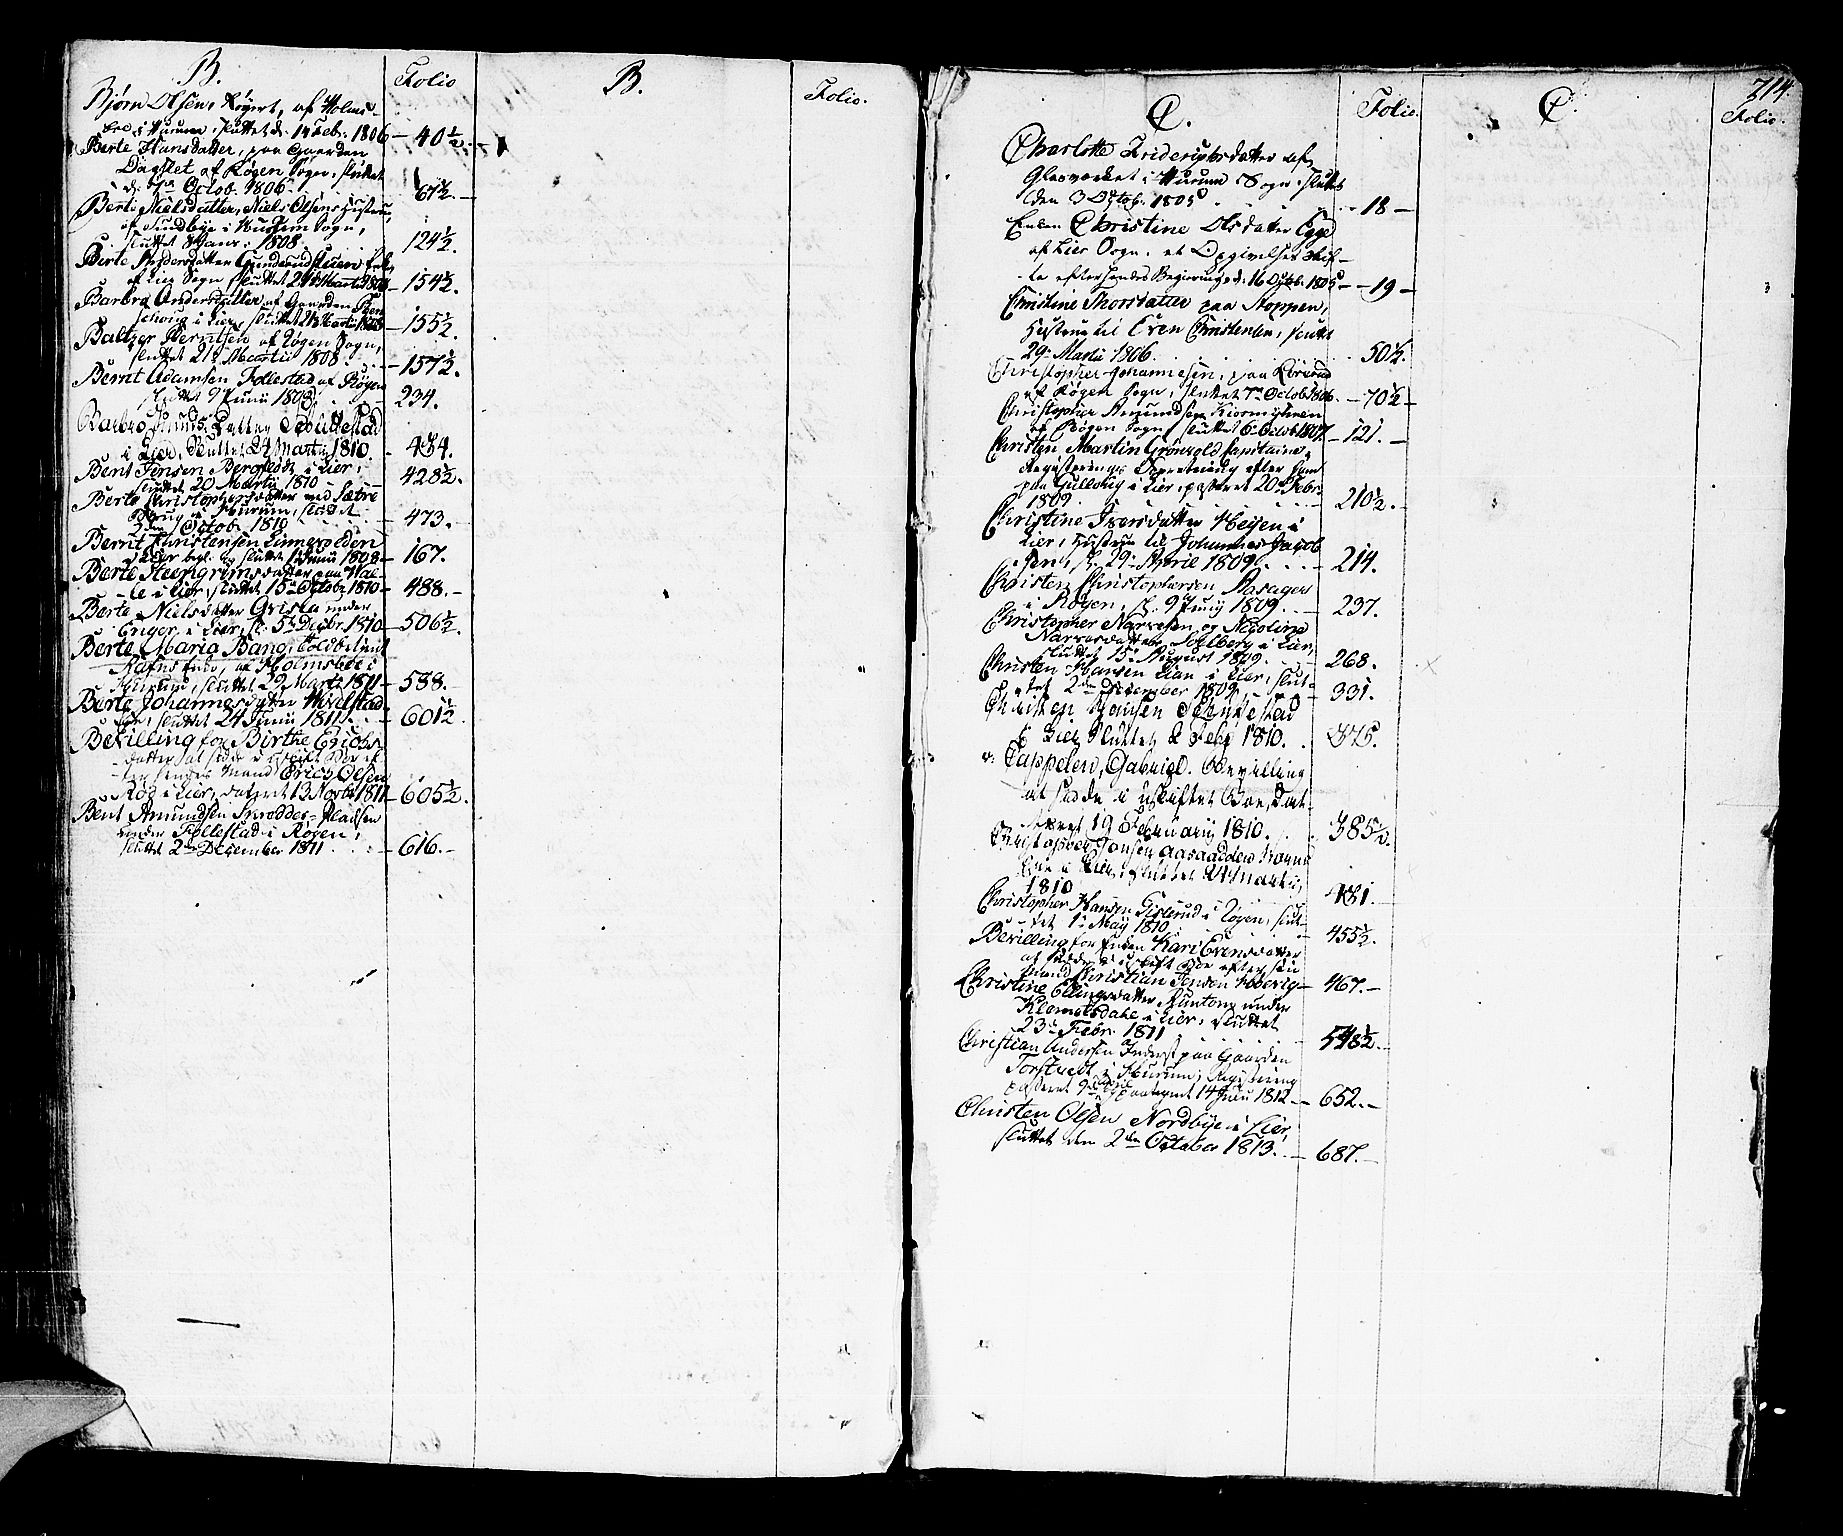 B.
Folio
Bjørn Olsen, Røgert, af Holms-
boe i Hurum, sluttet d. 14 Feb. 1806 — 40½
Berte Hansdatter, paa Gaarden
Dagslet af Røgen Sogn, sluttet
d. 7de Octob. 1806. 67½.
Berte Nielsdatter, Niels Olsens Hustru,
af Sundbye i Hurum Sogn,
sluttet Janv. 1808. 124½.
Birte Gundersrud
af Lier Sogn sluttet 21 Martii 1808 — 154½.
Barbra Andersdatter af Gaarden
i Lier, sluttet 21 Martii 1808 — 155½.
Baltzer Berntsen af Røgen Sogn,
sluttet 21 Martii 1808. — 157½.
Bernt Adamsen Follestad af Røgen
sluttet 9 Junii 1809. — 234.
Barbro Datter
i Lier, Sluttet 24 Martii 1810. 434.
Bent Jensen i Lier,
sluttet 20 Martii 1810 — 428½.
Berte Christophersdatter ved Sætre
Brug i Hurum, sluttet
2den Octobr 1810 473.
Bernt Christensen Linnesvolden
i Lier sluttet 1 Junii 1808 — 167.
Berte Steengrimsdatter
i Lier, sluttet 15 Octobr 1810 — 488.
Berte Nielsdatter under
Enger i Lier, sl. 5 Decbr. 1810 — 506½.
Berte Maria Bang, Toldbetjent
af Holmsboe i
Hurum, sluttet 29 Martii 1811 — 538.
Berte Johannesdatter
Lier, sluttet 24 Junii 1811. — 601½
Bevilling for Birthe Erichs-
datter at sidde i uskiftet Boe ef-
ter hendes Mand Erics Olsen
Røg i Lier, dateret 13 Novbr 1811 — 605½.
Bent Amundsen Skrædder-Pladsen
under Follestad i Røgen,
sluttet 2den December 1811 — 616.
B.
Folio.
714.
C.
Folio.
Charlotte Friderichsdatter af
Glasværket i Hurum Sogn, sluttet
den 3 Octob. 1805 18 —
Enken Christine Olsdatter Egge
af Lier Sogn, et Opgivelses Skif-
te efter hendes Begiering d. 16 Octob. 1805 — 19 —
Christine Thorsdatter paa Stoppen,
Hustru til Even Christensen, sluttet
29 Martii 1806. 50½.
Christopher Johannesen, paa
af Røgen Sogn, sluttet 7de Octob 1806. — 70½ —
Christopher Amundsen
af Røgen Sogn, sluttet 6. Octob 1807. — 121. —
Christen Martin Grønvold Capitaine,
Registerings Forretning efter ham
paa Gullaug i Lier, passeret 20 Febr.
1809. 210½.
Christine Iversdatter Heyen i
Lier, Hustru til Johannes Jacob-
sen, sl. 29 Aprile 1809. 214.
Christen Christophersen Aasager
i Røgen, sl. 9 Junij 1809. — 237.
Christopher Narvesen og Nicoline
Narvesdatter Solberg i Lier,
sluttet 15 August 1809. 268.
Christen Hansen Lian i Lier, slut-
tet 2den December 1809. — 331.
Christen Hansen
i Lier Sluttet 2 Febr 1810. 375.
v. Cappelen, Gabriel. Bevilling
at sidde i uskiftet Boe, Dat-
teret 19 February 1810. 385½.
Christopher Jensen
i Lier, sluttet Martii,
1810 431.
Christopher Hansen Gisterud i Røgen, slut-
tet 1 May 1810. 455½.
Bevilling for Enken Kari Evensdatter
at sidde i uskift Boe efter sin
Mand Christian Jensen — 467. —
Christine Ellingsdatter under
Klomelsdahl i Lier, sluttet
23 Febr. 1811 548½.
Christian Andersen Inderst paa Gaarden
Torstvedt i Hurum, Registering
passeret 9 14 Juni 1812 — 652. —
Christen Olsen Nordbye i Lier,
sluttet den 2den October 1813. — 687. —
C.
Folio.